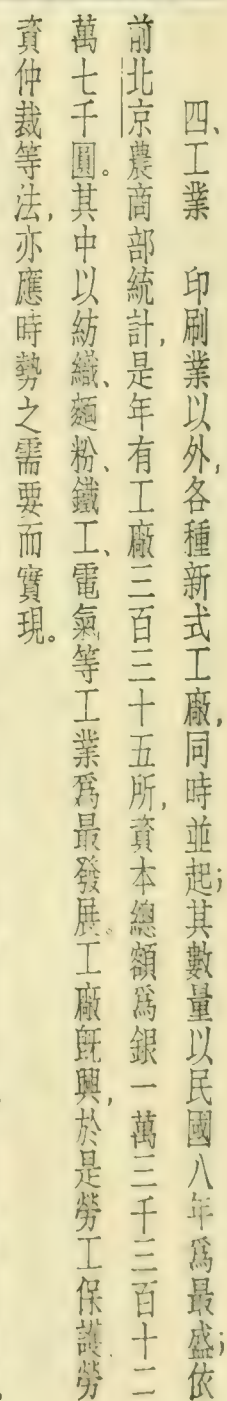 四、工業　印刷業以外，各種新式工廠，同時並起；其數量以民國八年爲最盛；依
前北京農商部統計，是年有工廠三百三十五所，資本總額爲銀一萬三千三百十二
萬七千圓。其中以紡織、麵粉、鐵工、電氣等工業爲最發展。工廠旣興，於是勞工保護、勞
資仲裁等法，亦應時勢之需要而實現。